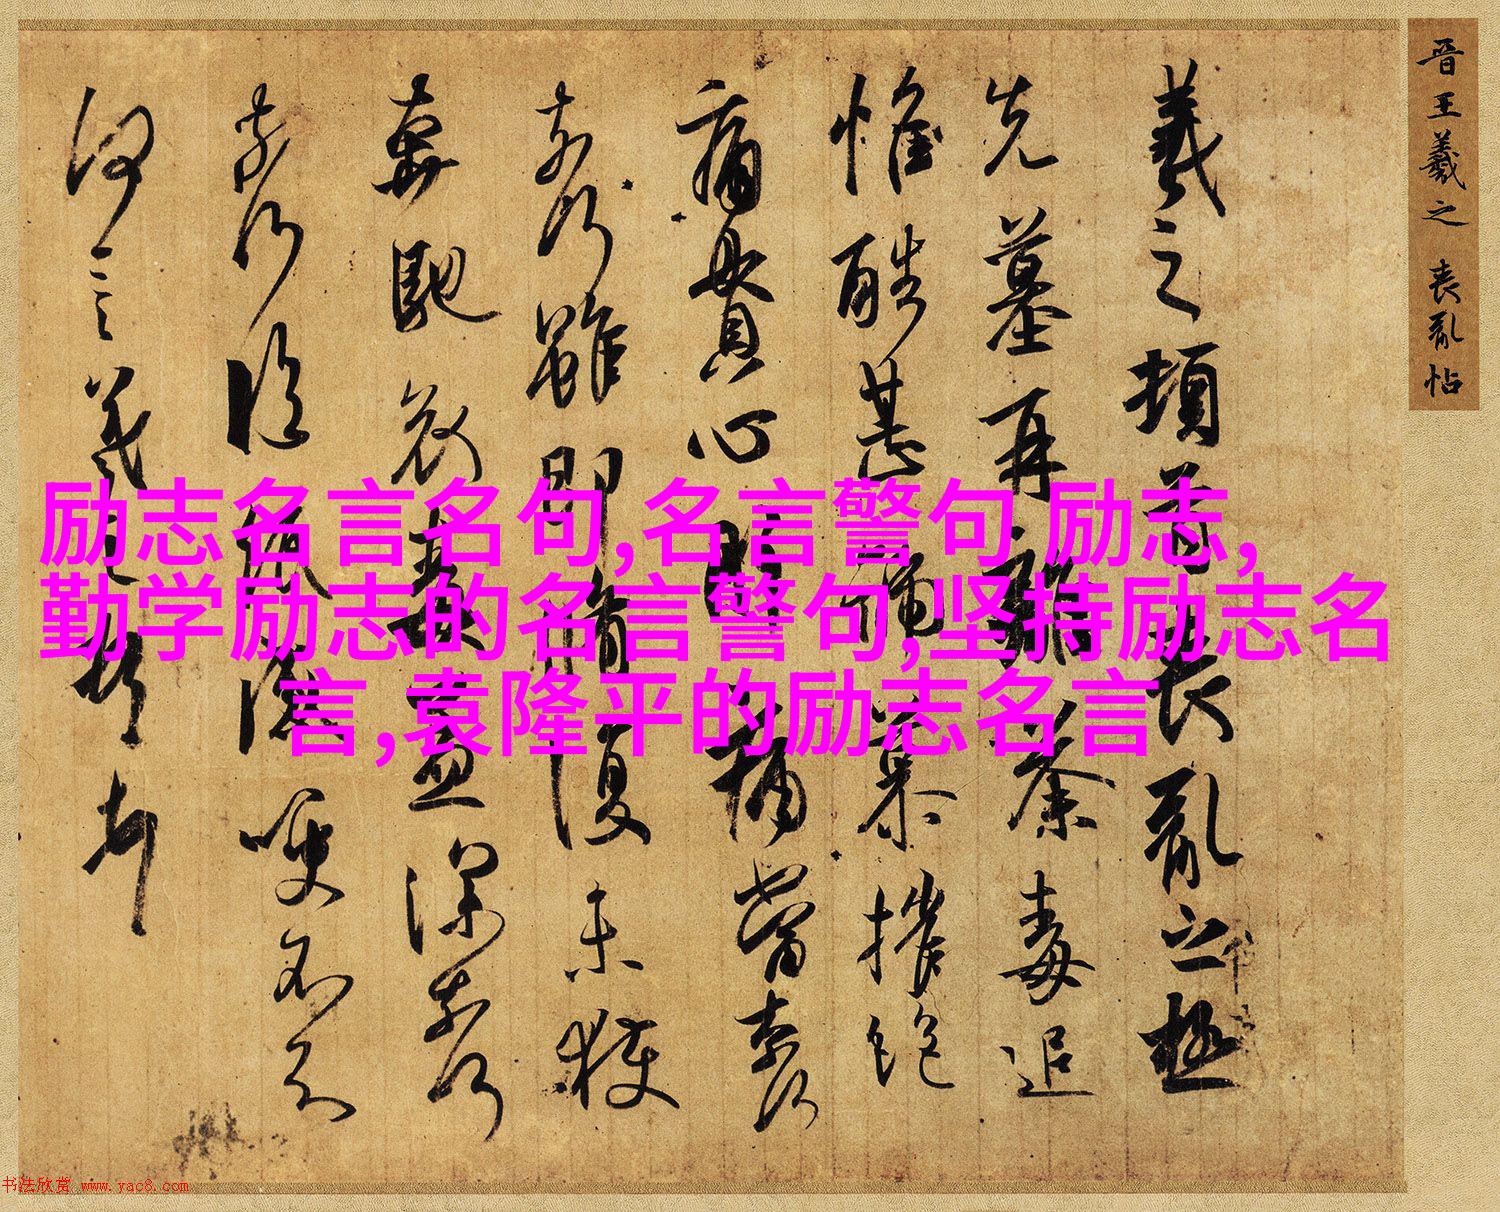 晋王羲之 丧乱帖
羲之顿首丧乱之极
先墓再离荼毒追
惟酷甚号慕摧绝
痛贯心肝痛当奈何
奈何虽即修复未获
奔驰哀毒益深奈何
奈何临纸感哽不知
何言羲之顿首
励志名言名句,名言警句 励志,
勤学励志的名言警句,坚持励志名
言,袁隆平的励志名言
书法欣赏 www.yac8.com